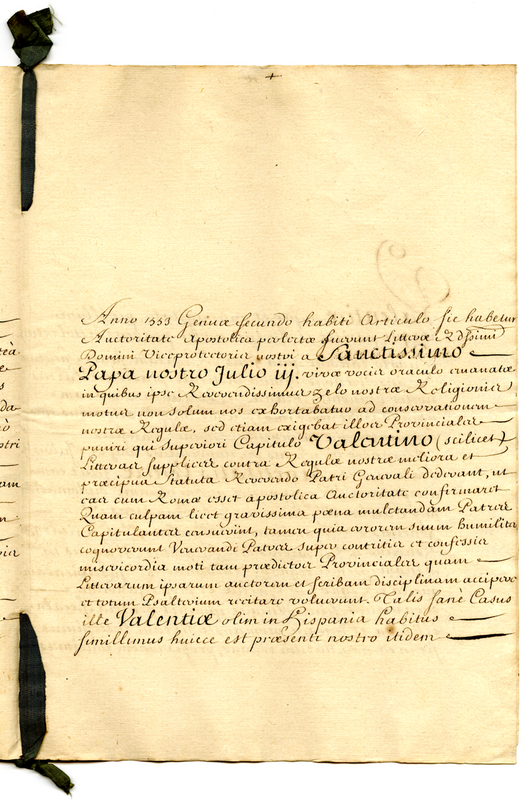 Anno 1553 Genuæ secundo habiti Articulo sic habetur
Auctoritate Apostolica perlectæ fuerunt Litteræ Rdssimi
Domini Viceprotectoris nostri a Sanctissimo
Papa nostro Julio iij. vivæ vocis oraculo emanatæ
in quibus ipse Reverendissimus zelo nostræ Religionis
motus non solum nos exhortabatur ad conservationem
nostræ Regulæ, sed etiam exigebat illos Provinciales
puniri qui superiori Capitulo Valentino (scilicet)
Litteras supplices contra Regulæ nostræ meliora et
præcipua statuta Reverendo Patri Generali dederant, ut
eas cum Romæ esset apostolica Auctoritate confirmaret
Quam culpam licet gravissima pœna mulctandam Patres
Capitulantes censuerint, tamen quia errorem suum humilita
cognoverunt Venerandi Patres super contritis et confessis
misericordia moti tam prædictos Provinciales quam
Litterarum ipsarum auctorem et scribam disciplinam accipere
et totum Psalterium recitare voluerunt. Talis sanè Casus
ille Valentiæ olim in Hispania habitus
simillimus huicce est præsenti nostro itidem